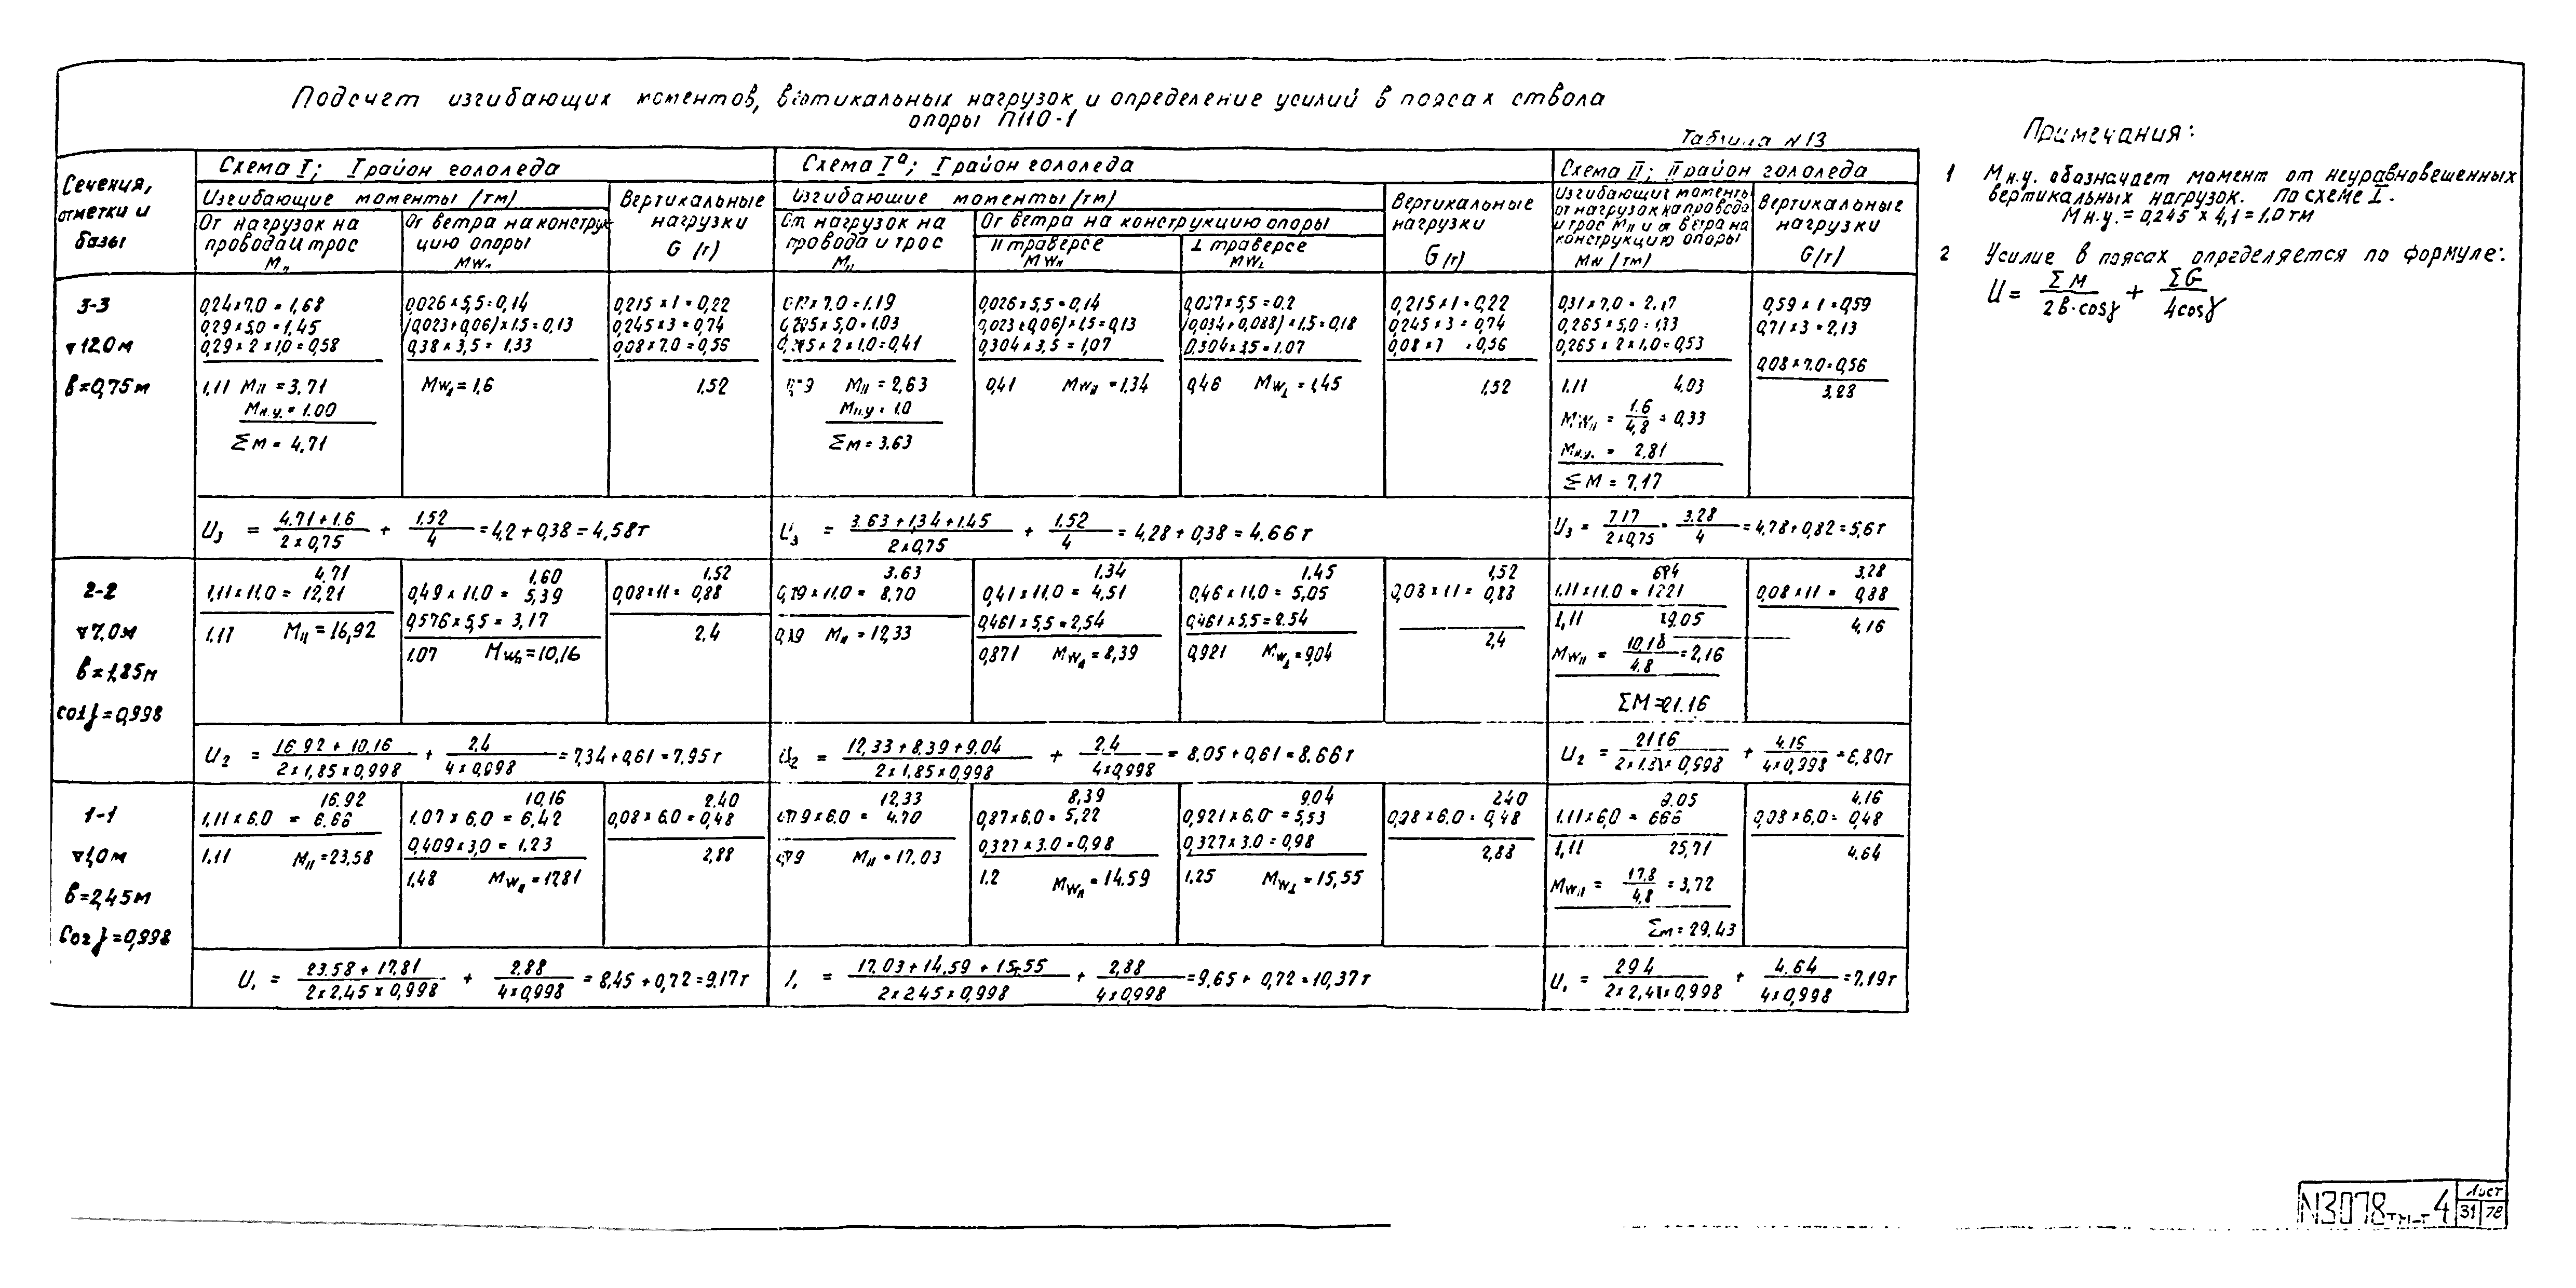 Подсчет изгибающих моментов, вертикальных нагрузок и определение усилий в поясах ствола
опоры П110-1
Таблица N13
Сечения,
отметки и
базы
Схема I; I район гололеда
Изгибающие моменты (тм)
От нагрузок на
провода и трос
M॥
От ветра на конструк
цию опоры
MW॥
Вертикальные
нагрузки
G (т)
Схема Iᵃ; I район гололеда
Изгибающие моменты (тм)
От нагрузок на
провода и трос
M॥
От ветра на конструкцию опоры
॥ траверсе
MW॥
⊥ траверсе
MW⊥
Вертикальные
нагрузки
G (т)
Схема II; II район гололеда
Изгибающие моменты
от нагрузок на провода
и трос M॥ и от ветра на
конструкцию опоры
MW (тм)
Вертикальные
нагрузки
G (т)
3-3
▽12.0м
в=0,75м
0,24x7.0 = 1,68
0,29 x 5,0 = 1,45
0,29 x 2 x 1,0 = 0,58
1,11 M॥ = 3,71
Mн.у. = 1.00
ΣM = 4,71
0,026 x 5,5 = 0,14
(0,023+0,06) x 1.5 = 0,13
0,38 x 3,5 = 1,33
MW॥ = 1,6
0,215 x 1 = 0,22
0,245 x 3 = 0,74
0,08 x 7.0 = 0,56
1,52
x 7.0 = 1.19
x 5,0 = 1.03
x 2 x 1,0 = 0,41
M॥ = 2,63
Mн.у = 1.0
ΣM = 3.63
0,026 x 5,5 = 0,14
0,023+0,06) x 1,5 = 0,13
0,304 x 3,5 = 1,07
0,41 MW॥ = 1,34
0,037 x 5,5 = 0.2
(0,034+0,088) x 1,5 = 0,18
0,304 x 3,5 = 1.07
0,46 MW⊥ = 1,45
0,215 x 1 = 0,22
0,245 x 3 = 0,74
0,08 x 7 = 0,56
1,52
0,31 x 7,0 = 2,17
0,265 x 5,0 = 1,33
0,265 x 2 x 1,0 = 0,53
1.11 4,03
MW॥ = 1.6/4,8 = 0,33
Mн.у. = 2,81
ΣM = 7,17
0,59 x 1 = 0,59
0,71 x 3 = 2,13
0,08 x 7.0 = 0,56
3,28
U₃ = (4.71+1.6)/(2 x 0,75) + 1,52/4 = 4,2+0,38 = 4,58т
U₃ = (3.63+1,34+1.45)/(2 x 0,75) + 1,52/4 = 4,28+0,38 = 4.66т
U₃ = 7.17/(2 x 0,75) + 3.28/4 = 4,78+0,82 = 5,6т
2-2
▽7.0м
в=1,85м
cosγ=0,998
4,71
1,11 x 11,0 = 12,21
1.11 M॥ = 16,92
1,60
0,49 x 11,0 = 5,39
0,576 x 5,5 = 3,17
1.07 MW॥ = 10,16
1,52
0,08 x 11 = 0,88
2,4
3.63
0,79 x 11.0 = 8,70
0,79 M॥ = 12,33
1,34
0,41 x 11,0 = 4,51
0,461 x 5,5 = 2,54
0,871 MW॥ = 8,39
1.45
0,46 x 11,0 = 5,05
0,461 x 5,5 = 2.54
0,921 MW⊥ = 9,04
1,52
0,08 x 11 = 0,88
2,4
6,84
1.11 x 11.0 = 12,21
1,11 19.05
MW॥ = 10,18/4.8 = 2,16
ΣM = 21.16
3,28
0,08 x 11 = 0,88
4,16
U₂ = (16.92+10,16)/(2 x 1,85 x 0,998) + 2,4/(4 x 0,998) = 7,34+0,61 = 7.95т
U₂ = (12,33+8.39+9.04)/(2 x 1,85 x 0,998) + 2,4/(4 x 0,998) = 8,05+0,61 = 8.66т
U₂ = 21.16/(2 x 1.8 x 0,998) + 4.16/(4 x 0,998) = 6,80т
1-1
▽1,0м
в=2,45м
Cosγ=0,998
16.92
1,11 x 6.0 = 6.66
1,11 M॥ = 23,58
10,16
1.07 x 6,0 = 6,42
0,409 x 3,0 = 1.23
1.48 MW॥ = 17,81
2.40
0,08 x 6.0 = 0,48
2,88
12,33
0,79 x 6.0 = 4.70
0,79 M॥ = 17.03
8,39
0,87 x 6,0 = 5,22
0,327 x 3.0 = 0,98
1.2 MW॥ = 14.59
9,04
0,921 x 6.0 = 5,53
0,327 x 3.0 = 0,98
1.25 MW⊥ = 15,55
2.40
0,08 x 6.0 = 0,48
2,88
9.05
1.11 x 6,0 = 6.66
1,11 25,71
MW॥ = 17.8/4,8 = 3,72
Σм = 29,43
4.16
0,08 x 6.0 = 0,48
4,64
U₁ = (23.58+17,81)/(2 x 2,45 x 0,998) + 2,88/(4 x 0,998) = 8,45+0,72 = 9.17т
= (17.03+14,59+15,55)/(2 x 2.45 x 0,998) + 2,88/(4 x 0,998) = 9,65+0,72 = 10,37т
U₁ = 29.4/(2 x 2,4 x 0,998) + 4.64/(4 x 0,998) = 7.19т
Примечания:
1 Mн.у. обозначает момент от неуравновешенных
вертикальных нагрузок. По схеме I.
Mн.у. = 0,245 x 4,1 = 1.0 тм
2 Усилие в поясах определяется по формуле:
U = ΣM/(2в·cosγ) + ΣG/(4cosγ)
N3078тм-т4
Лист
31 78